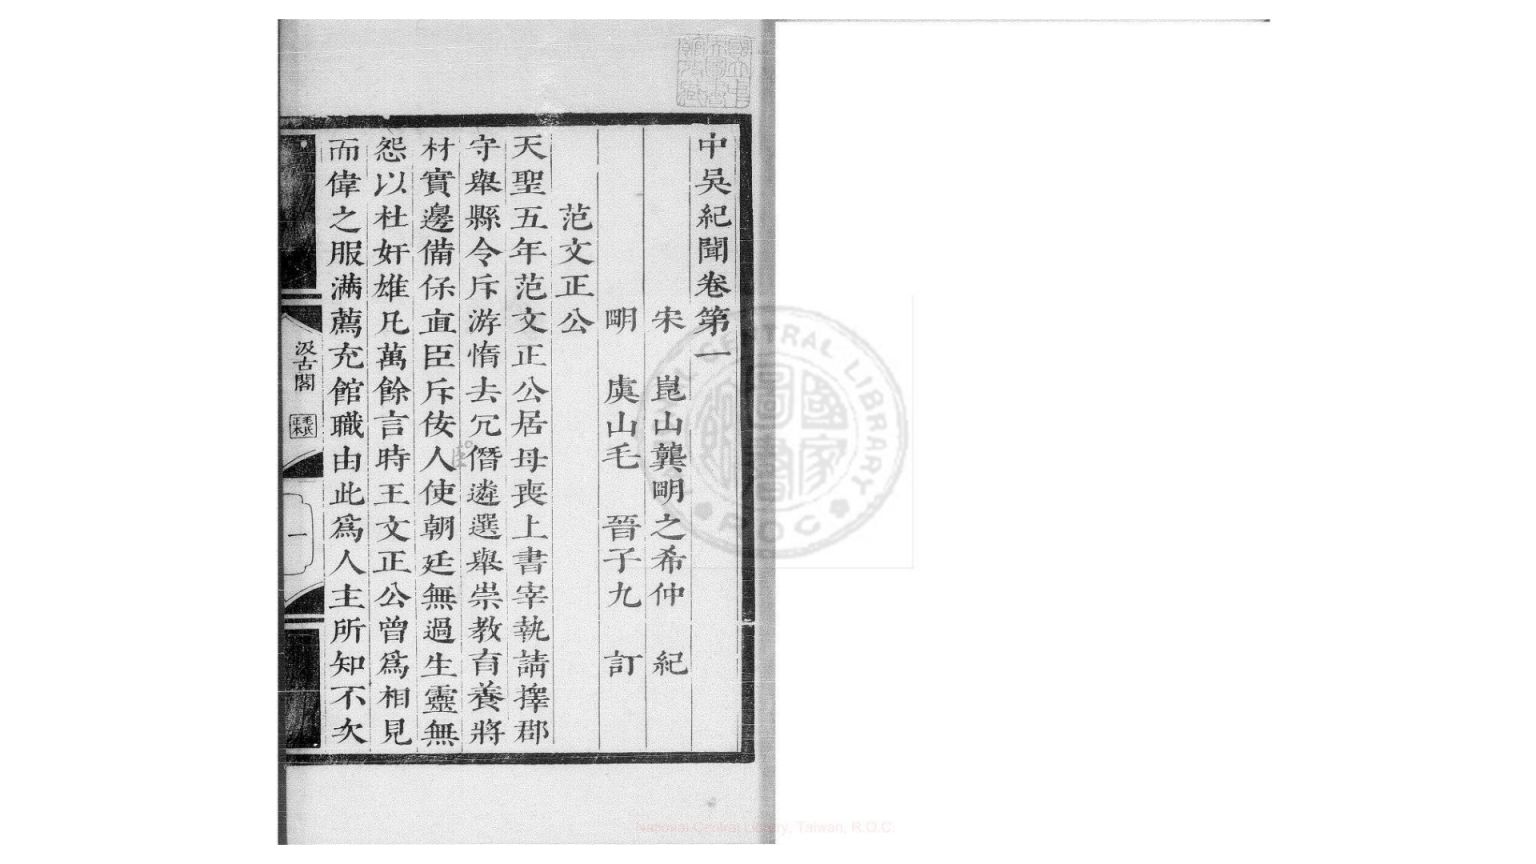 中吳紀聞卷第一
宋 崑山龔明之希仲 紀
明 虞山毛 晉子九 訂
范文正公
天聖五年范文正公居母喪上書宰執請擇郡
守舉縣令斥游惰去冗僭遴選舉崇教育養將
材實邊備保直臣斥佞人使朝廷無過生靈無
怨以杜奸雄凡萬餘言時王文正公曾為相見
而偉之服滿薦充館職由此為人主所知不次
汲古閣
毛氏正本
一
國立中央圖書館收藏
NATIONAL CENTRAL LIBRARY
R.O.C.
國家圖書館
National Central Library, Taiwan, R.O.C.